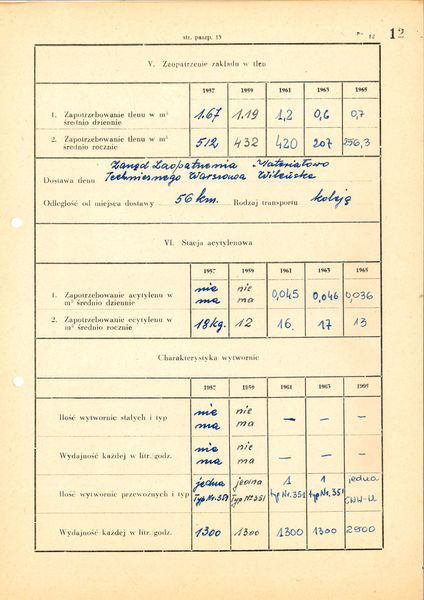 str. paszp. 15
12
12
V. Zaopatrzenie zakładu w tlen
1957 1959 1961 1963 1965
1. Zapotrzebowanie tlenu w m³ średnio dziennie 1.67 1.19 1,2 0,6 0,7
2. Zapotrzebowanie tlenu w m³ średnio rocznie 512 432 420 207 256,3
Zarząd Zaopatrzenia Materiałowo
Dostawa tlenu Technicznego Warszawa Wileńska
Odległość od miejsca dostawy 56 km. Rodzaj transportu koleją
VI. Stacja acytylenowa
1957 1959 1961 1963 1965
1. Zapotrzebowanie acytylenu w m³ średnio dziennie nie ma nie ma 0,045 0,046 0,036
2. Zapotrzebowanie acytylenu w m³ średnio rocznie 18 kg. 12 16. 17 13
Charakterystyka wytwornic
1957 1959 1961 1963 1965
Ilość wytwornic stałych i typ nie ma nie ma – – –
Wydajność każdej w litr./godz. nie ma nie ma – – –
Ilość wytwornic przewoźnych i typ jedna Typ Nr. 351 jedna Typ Nr 351 1 typ Nr. 351 1 typ Nr. 351 jedna
Wydajność każdej w litr./godz. 1300 1300 1300 1300 2500